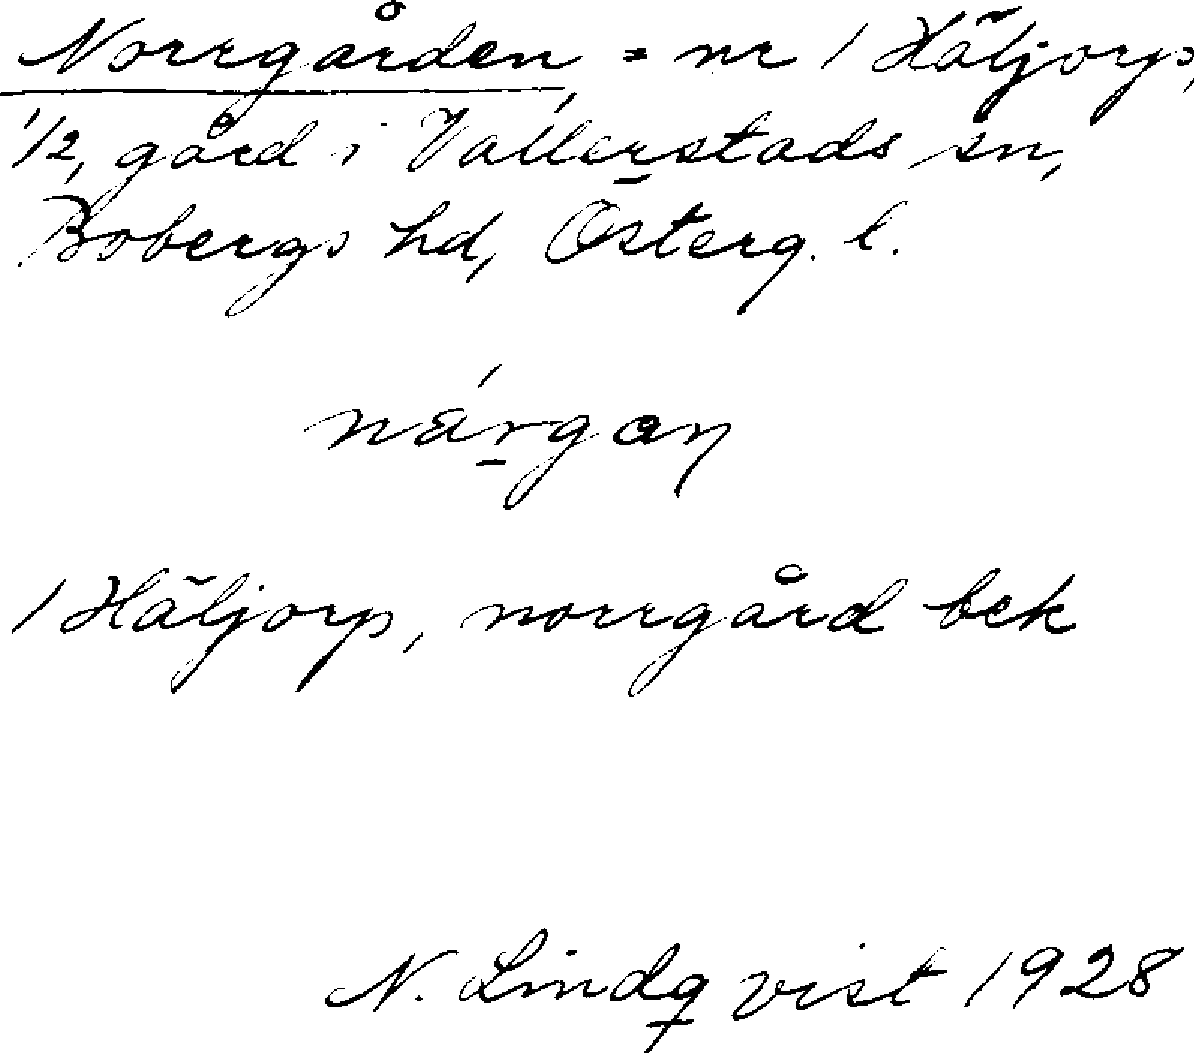 Norrgården, = nr 1 Häljorp,
1/2, gård i Vallerstads sn,
Bobergs hd, Österg. l.
1 Häljorp, norrgård bek
N. Lindqvist 1928